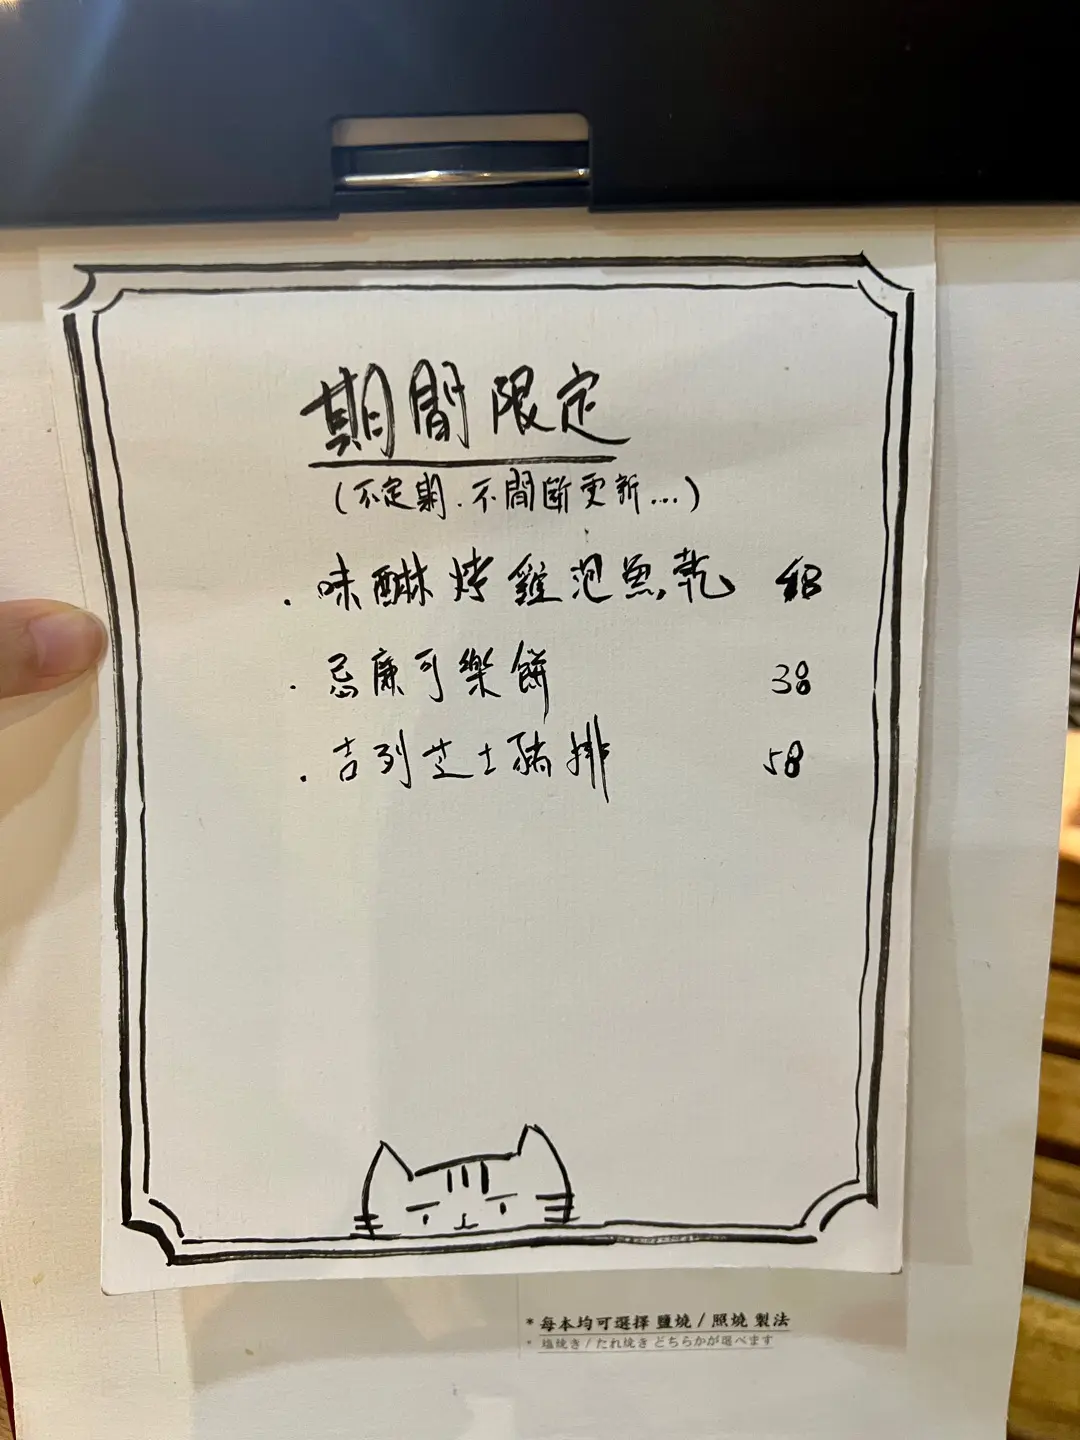 期間限定
(不定期.不間斷更新...)
. 味醂烤雞泡魚乾
. 忌廉可樂餅 38
. 吉列芝士豬排 58
* 每本均可選擇 鹽燒 / 照燒 製法
* 塩焼き / たれ焼き どちらかが選べます